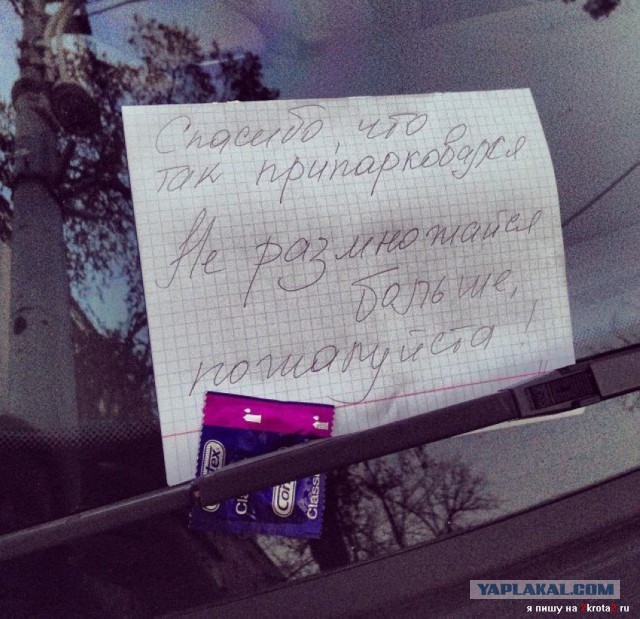 Спасибо, что
так припарковался
Не размножайся
больше,
пожалуйста!
Contex
Classic
YAPLAKAL.COM
я пишу на 2krota2.ru